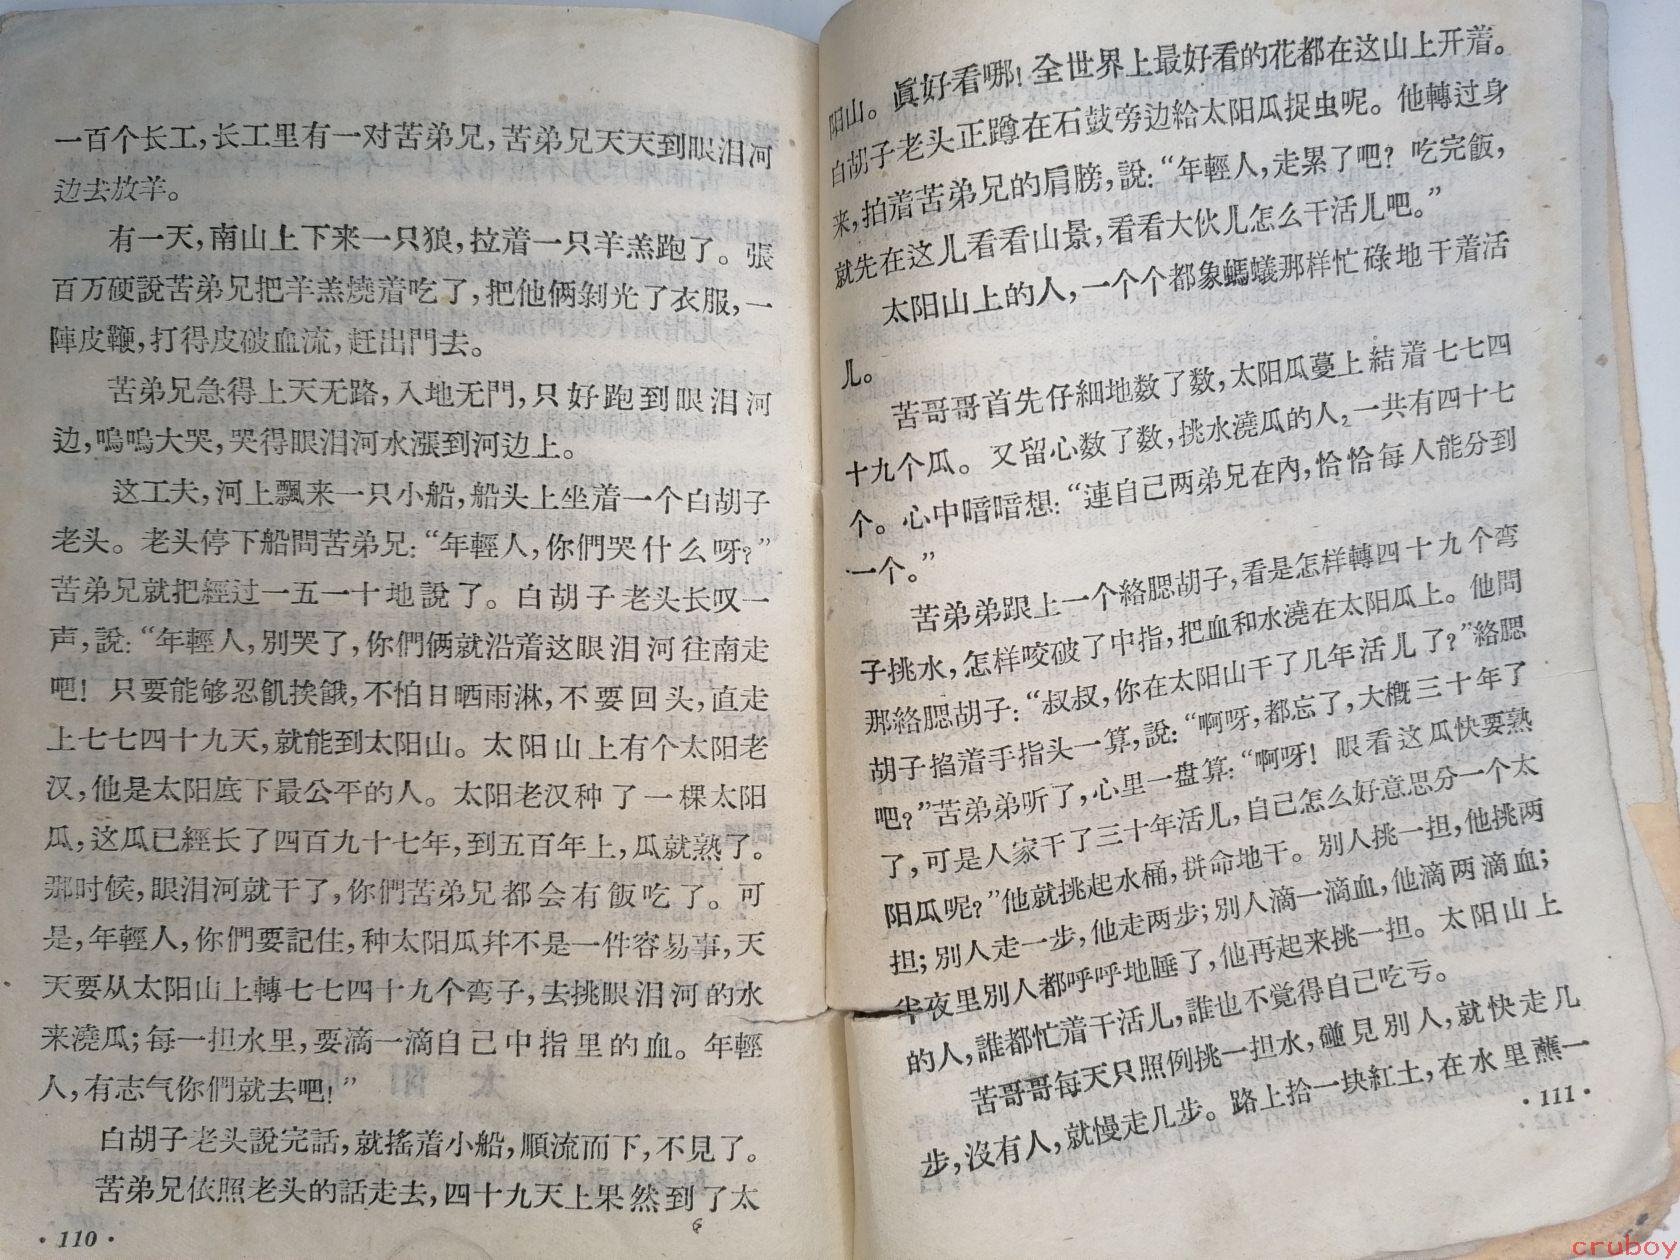 一百个长工，长工里有一对苦弟兄，苦弟兄天天到眼泪河
边去放羊。
有一天，南山上下来一只狼，拉着一只羊羔跑了。張
百万硬說苦弟兄把羊羔燒着吃了，把他俩剝光了衣服，一
陣皮鞭，打得皮破血流，赶出門去。
苦弟兄急得上天无路，入地无門，只好跑到眼泪河
边，嗚嗚大哭，哭得眼泪河水漲到河边上。
这工夫，河上飄来一只小船，船头上坐着一个白胡子
老头。老头停下船問苦弟兄：“年輕人，你們哭什么呀？”
苦弟兄就把經过一五一十地說了。白胡子老头长叹一
声，說：“年輕人，別哭了，你們俩就沿着这眼泪河往南走
吧！只要能够忍飢挨餓，不怕日晒雨淋，不要回头，直走
上七七四十九天，就能到太阳山。太阳山上有个太阳老
汉，他是太阳底下最公平的人。太阳老汉种了一棵太阳
瓜，这瓜已經长了四百九十七年，到五百年上，瓜就熟了。
那时候，眼泪河就干了，你們苦弟兄都会有飯吃了。可
是，年輕人，你們要記住，种太阳瓜幷不是一件容易事，天
天要从太阳山上轉七七四十九个弯子，去挑眼泪河的水
来澆瓜；每一担水里，要滴一滴自己中指里的血。年輕
人，有志气你們就去吧！”
白胡子老头說完話，就搖着小船，順流而下，不見了。
苦弟兄依照老头的話走去，四十九天上果然到了太
·110·
阳山。眞好看哪！全世界上最好看的花都在这山上开着。
白胡子老头正蹲在石鼓旁边給太阳瓜捉虫呢。他轉过身
来，拍着苦弟兄的肩膀，說：“年輕人，走累了吧？吃完飯，
就先在这儿看看山景，看看大伙儿怎么干活儿吧。”
太阳山上的人，一个个都象螞蟻那样忙碌地干着活
儿。
苦哥哥首先仔細地数了数，太阳瓜蔓上結着七七四
十九个瓜。又留心数了数，挑水澆瓜的人，一共有四十七
个。心中暗暗想：“連自己两弟兄在內，恰恰每人能分到
一个。”
苦弟弟跟上一个絡腮胡子，看是怎样轉四十九个弯
子挑水，怎样咬破了中指，把血和水澆在太阳瓜上。他問
那絡腮胡子：“叔叔，你在太阳山干了几年活儿了？”絡腮
胡子掐着手指头一算，說：“啊呀，都忘了，大概三十年了
吧？”苦弟弟听了，心里一盘算：“啊呀！眼看这瓜快要熟
了，可是人家干了三十年活儿，自己怎么好意思分一个太
阳瓜呢？”他就挑起水桶，拼命地干。別人挑一担，他挑两
担；別人走一步，他走两步；別人滴一滴血，他滴两滴血；
半夜里別人都呼呼地睡了，他再起来挑一担。太阳山上
的人，誰都忙着干活儿，誰也不覺得自己吃亏。
苦哥哥每天只照例挑一担水，碰見別人，就快走几
步，沒有人，就慢走几步。路上拾一块紅土，在水里蘸一
·111·
cruboy